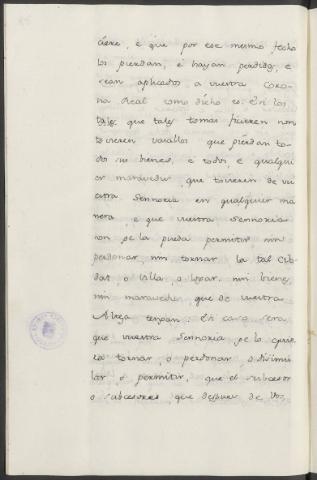 ciere, e que por ese mesmo fecho
los pierdan, e hayan perdido, e
sean aplicados a vuestra Coro-
na Real como dicho es. E si los
tales que tales tomas ficieren non
tovieren vasallos que pierdan to-
dos su bienes, e todos, e qualqui-
er maravedis, que tovieren de vu-
estra Sennoria en qualquier ma
nera, e que vuestra Sennoria
non se la pueda permitir nin
perdonar, nin tornar la tal Cib-
dat, o Villa, o Logar, nin bienes,
nin maravedis que de vuestra
Alteza tengan: E si caso sera
que vuestra Sennoria se lo quie-
ra tornar, o perdonar, o disimu-
lar, o permitir, que el subcesor
o subcesores que despues de Vos,